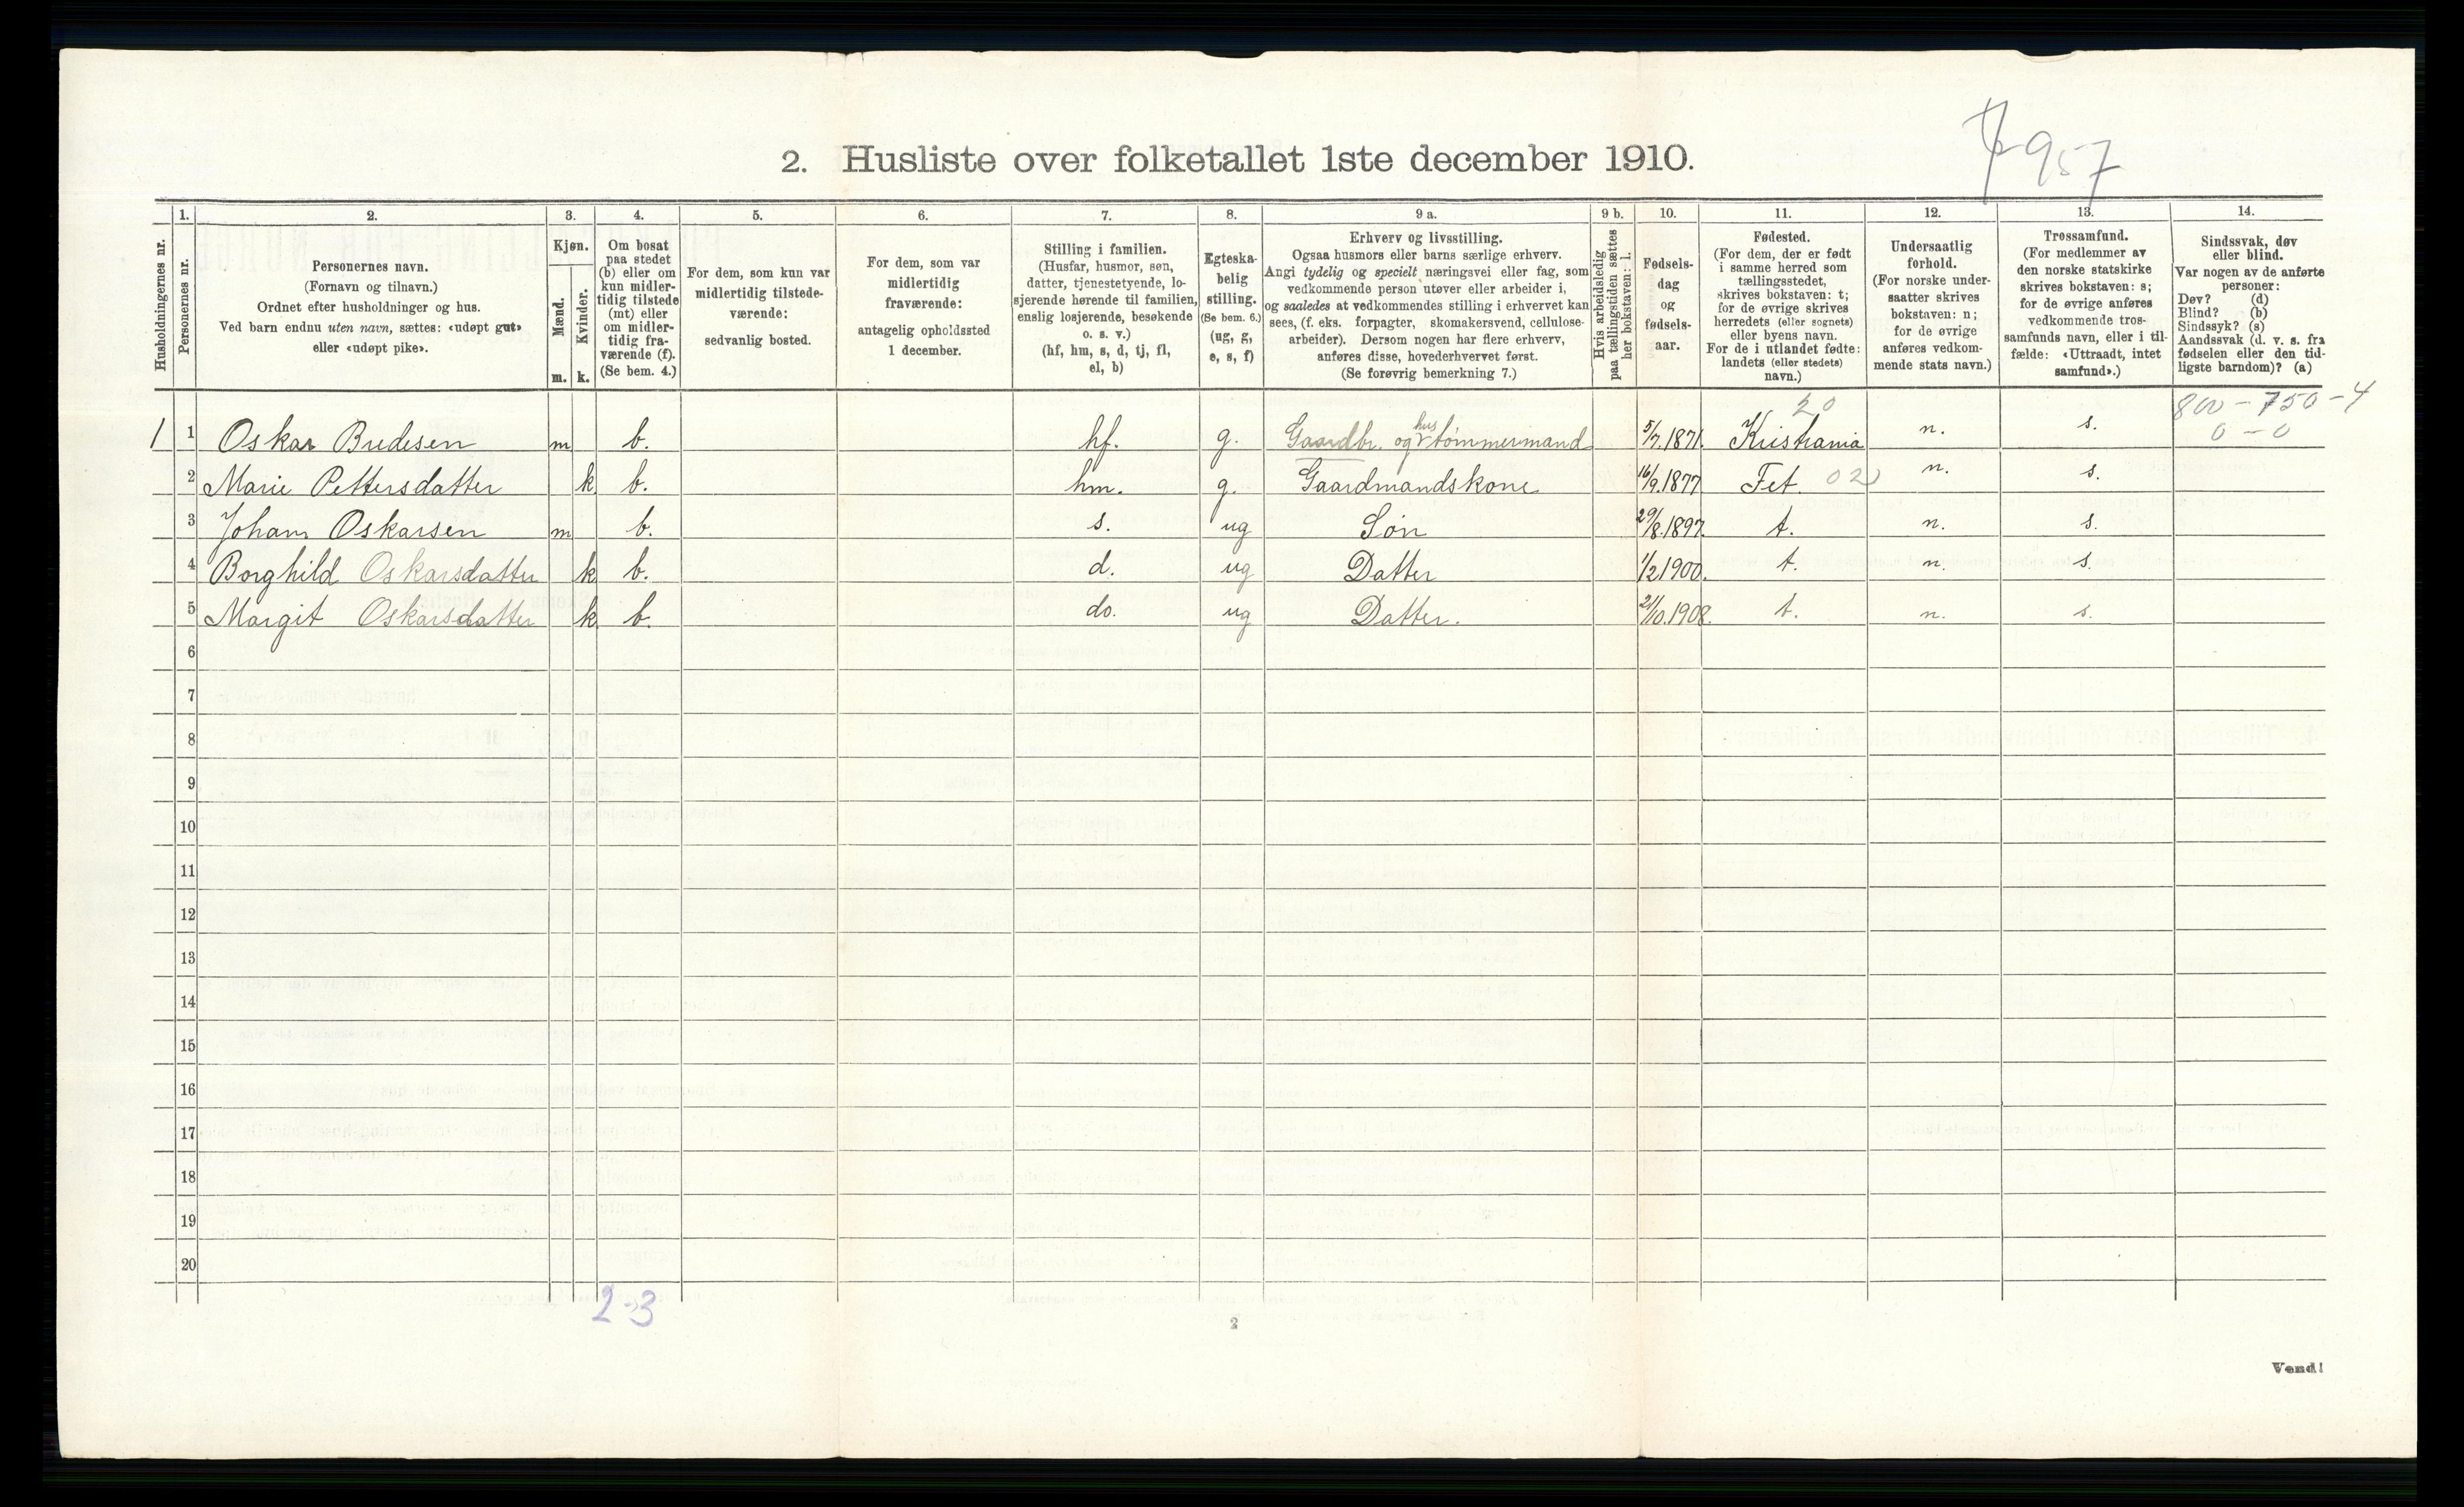 7957
2. Husliste over folketallet 1ste december 1910.
Husholdningernes nr.
1.
Personernes nr.
2.
Personernes navn.
(Fornavn og tilnavn.)
Ordnet efter husholdninger og hus.
Ved barn endnu uten navn, sættes: «udøpt gut»
eller «udøpt pike».
3.
Kjøn.
Mænd.
Kvinder.
m. k.
4.
Om bosat
paa stedet
(b) eller om
kun midler-
tidig tilstede
(mt) eller
om midler-
tidig fra-
værende (f).
(Se bem. 4.)
5.
For dem, som kun var
midlertidig tilstede-
værende:
sedvanlig bosted.
6.
For dem, som var
midlertidig
fraværende:
antagelig opholdssted
1 december.
7.
Stilling i familien.
(Husfar, husmor, søn,
datter, tjenestetyende, lo-
sjerende hørende til familien,
enslig losjerende, besøkende
o. s. v.)
(hf, hm, s, d, tj, fl,
el, b)
8.
Egteska-
belig
stilling.
(Se bem. 6.)
(ug, g,
e, s, f)
9 a.
Erhverv og livsstilling.
Ogsaa husmors eller barns særlige erhverv.
Angi tydelig og specielt næringsvei eller fag, som
vedkommende person utøver eller arbeider i,
og saaledes at vedkommendes stilling i erhvervet kan
sees, (f. eks. forpagter, skomakersvend, cellulose-
arbeider). Dersom nogen har flere erhverv,
anføres disse, hovederhvervet først.
(Se forøvrig bemerkning 7.)
9 b.
Hvis arbeidsledig
paa tællingstiden sættes
her bokstaven: l.
10.
Fødsels-
dag
og
fødsels-
aar.
11.
Fødested.
(For dem, der er født
i samme herred som
tællingsstedet,
skrives bokstaven: t;
for de øvrige skrives
herredets (eller sognets)
eller byens navn.
For de i utlandet fødte:
landets (eller stedets)
navn.)
12.
Undersaatlig
forhold.
(For norske under-
saatter skrives
bokstaven: n;
for de øvrige
anføres vedkom-
mende stats navn.)
13.
Trossamfund.
(For medlemmer av
den norske statskirke
skrives bokstaven: s;
for de øvrige anføres
vedkommende tros-
samfunds navn, eller i til-
fælde: «Uttraadt, intet
samfund».)
14.
Sindssvak, døv
eller blind.
Var nogen av de anførte
personer:
Døv? (d)
Blind? (b)
Sindssyk? (s)
Aandssvak (d. v. s. fra
fødselen eller den tid-
ligste barndom)? (a)
20 800 - 750 - 4
1 1 Oskar Bredesen m b. hf. g. Gaardbr. og hustømmermand 5/7.1871. Kristiania n. s. 0 - 0
2 Marie Pettersdatter k b. hm. g. Gaardmandskone 16/9.1877 Fet. 02 n. s.
3 Johan Oskarsen m b. s. ug Søn 29/8.1897. t. n. s.
4 Borghild Oskarsdatter k b. d. ug Datter 1/2 1900. t. n. s.
5 Margit Oskarsdatter k b. do. ug Datter. 21/10.1908. t. n. s.
6
7
8
9
10
11
12
13
14
15
16
17
18
19
20
2-3
2
Vend!